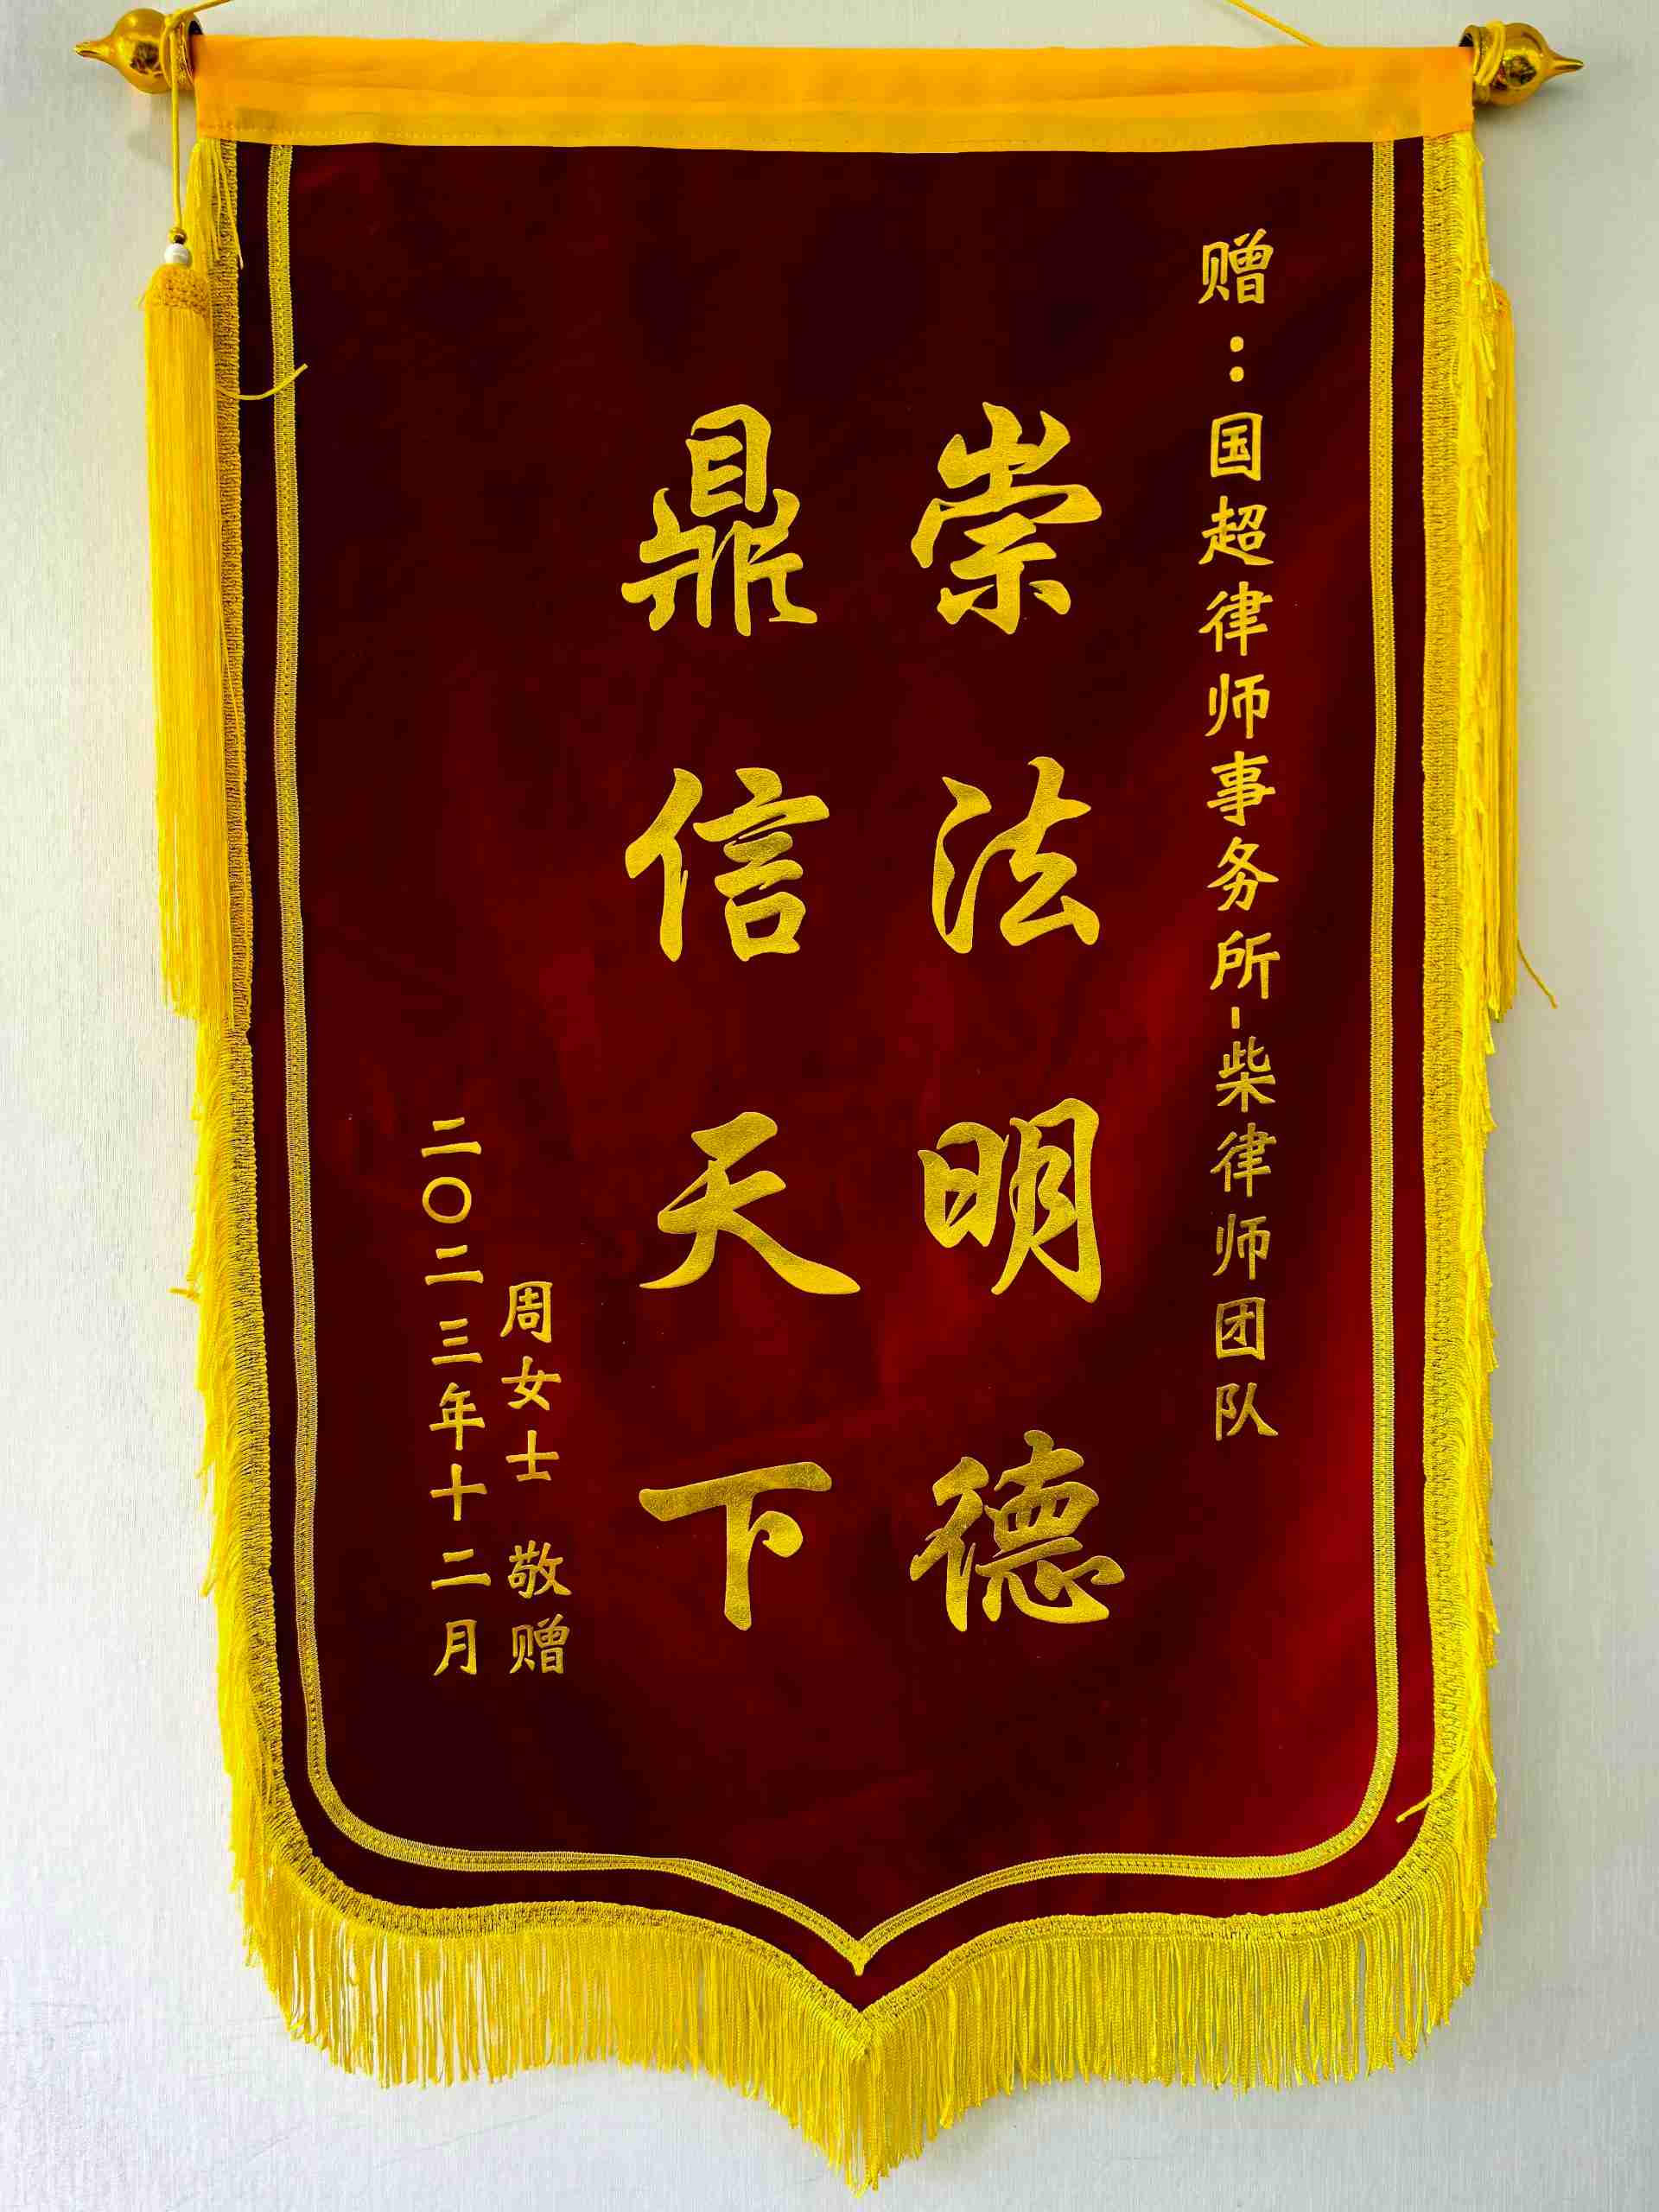 赠:国超律师事务所-柴律师团队
崇法明德
鼎信天下
周女士 敬赠
二〇二三年十二月